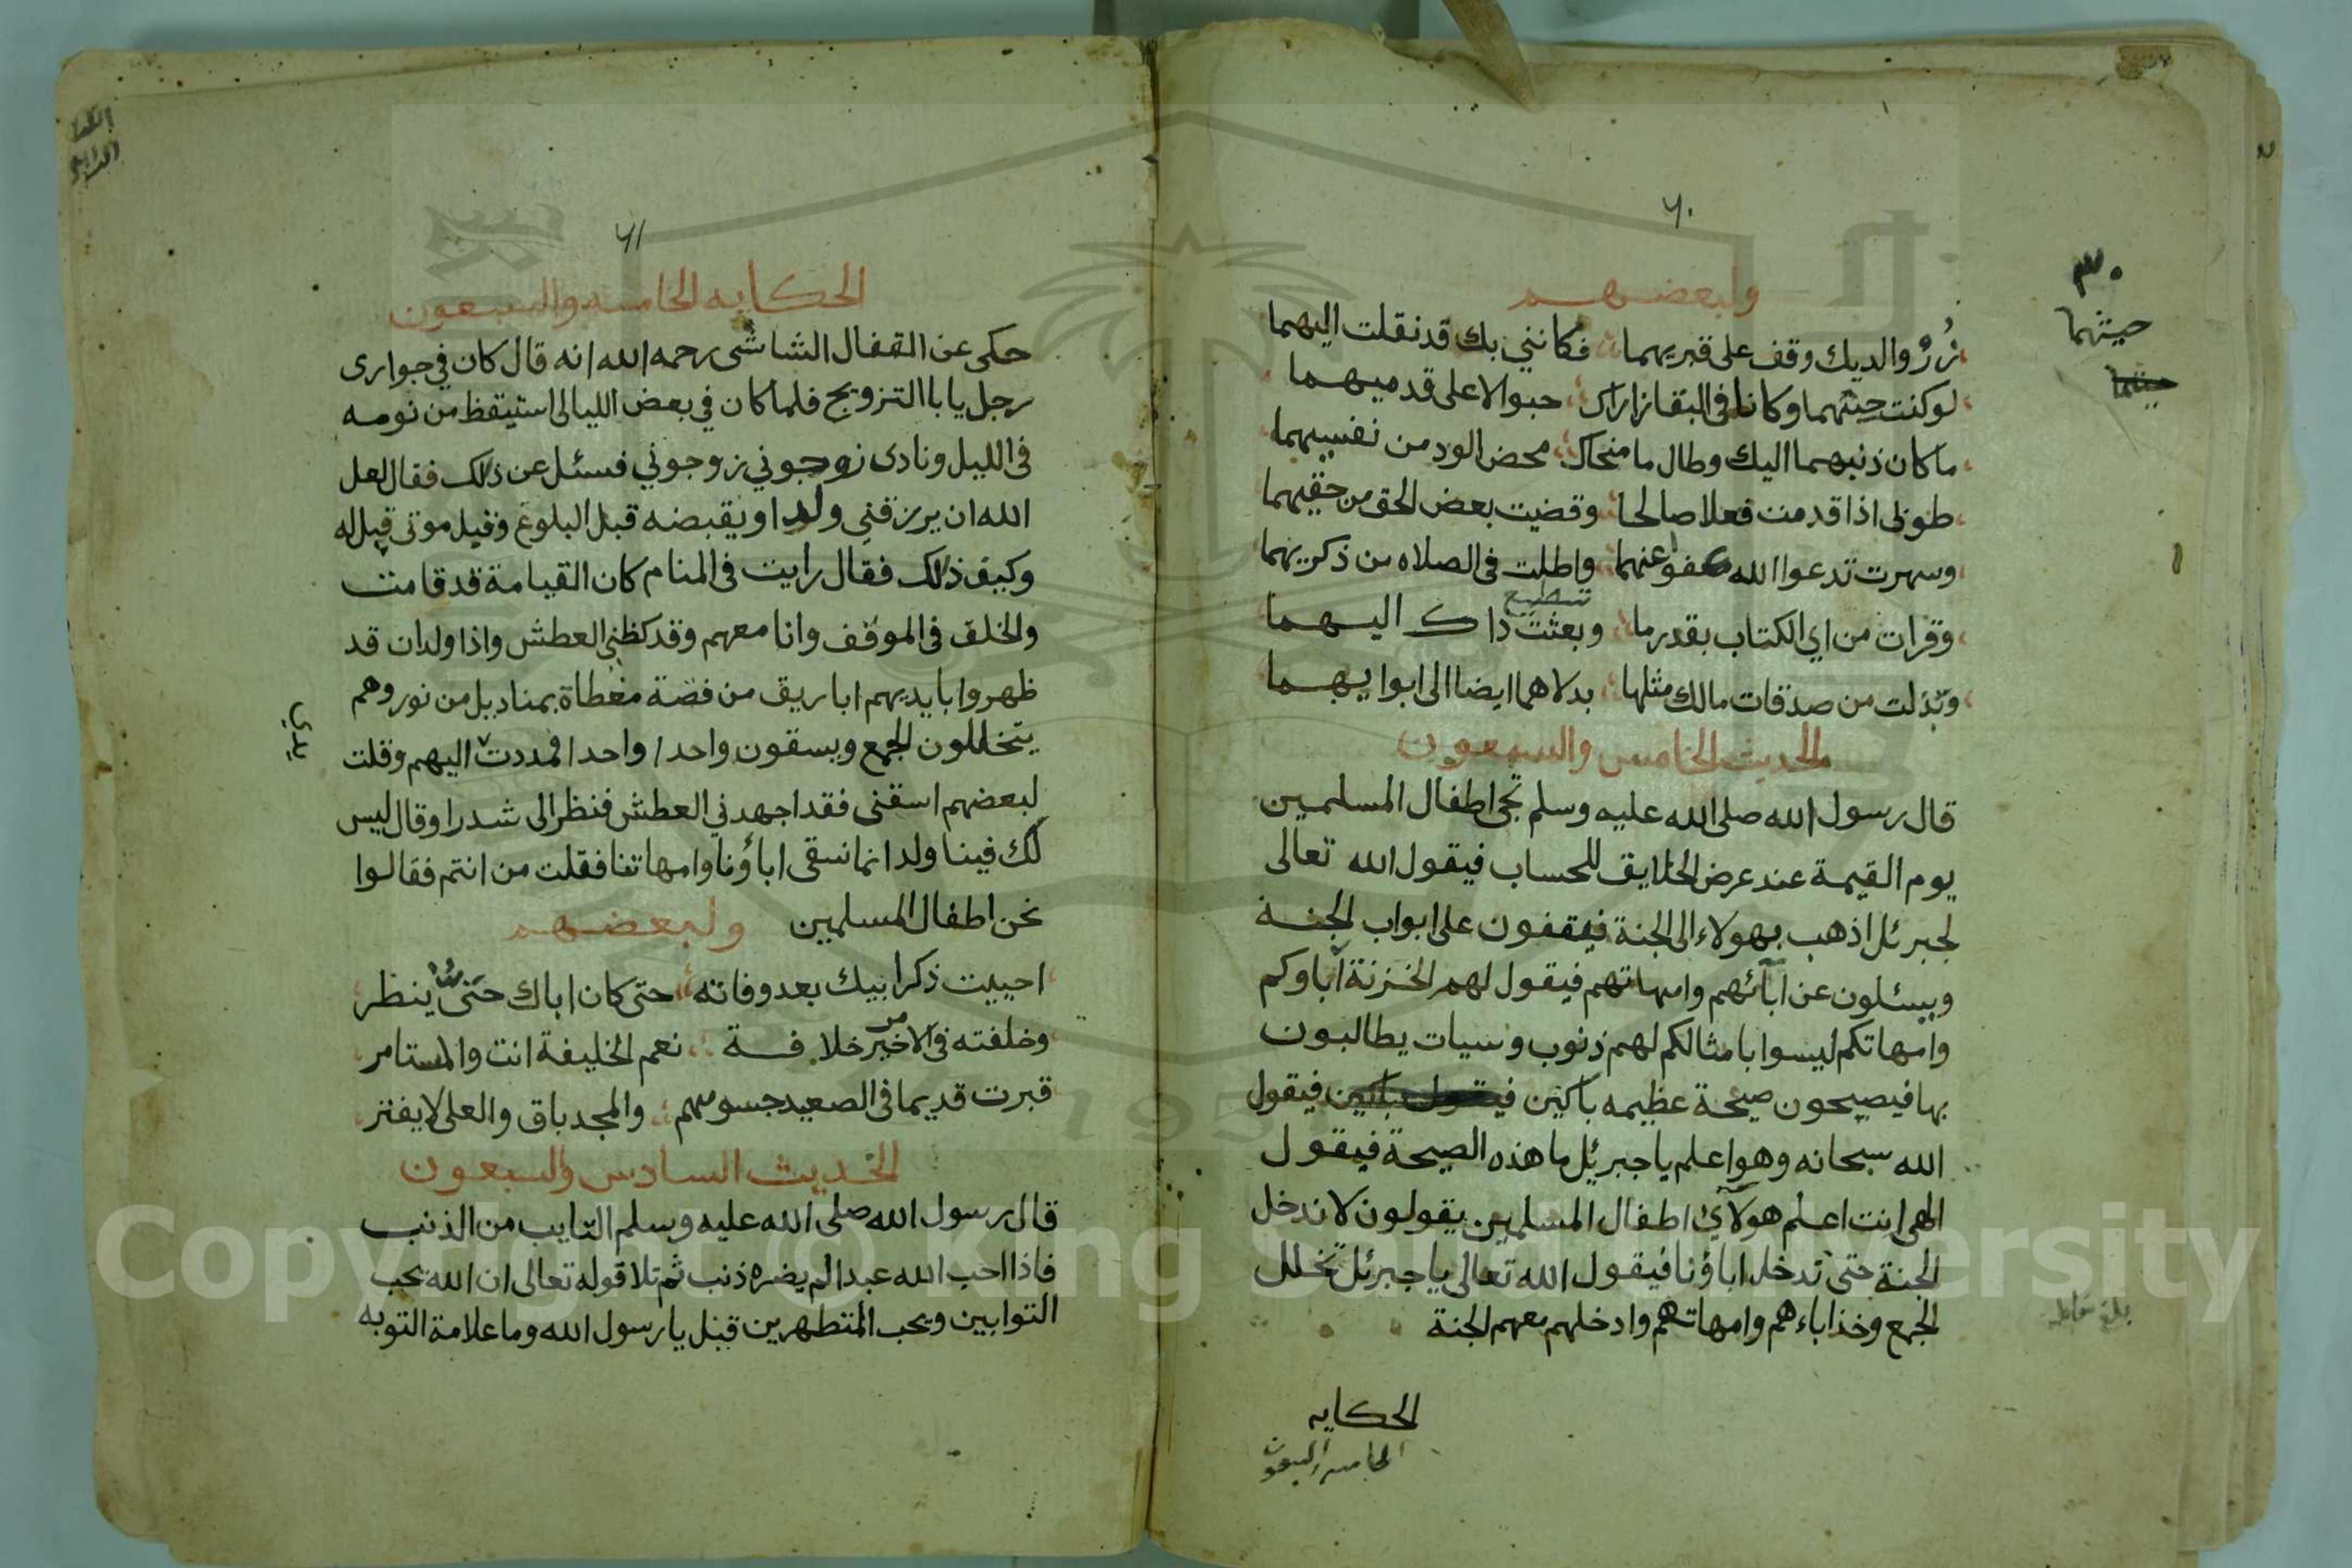 ٦٠
ولبعضهم
زُرْ والديك وقف على قبريهما فكانني بك قد نقلت اليهما
لو كنت حيثهما وكانا فى البقا زاراك حبوا لا على قدميهما
ما كان ذنبهما اليك وطال ما منحاك محض الود من نفسيهما
طوبى اذا قدمت فعلا صالحا وقضيت بعض الحق من حقيهما
وسهرت تدعوا الله عفوا عنهما واطلت فى الصلاه من ذكريهما
وقرات من اي الكتاب بقدر ما تسطيع وبعثت ذاك اليهما
وبذلت من صدقات مالك مثلها بدلاهما ايضا الى ابوايهما
الحديث الخامس والسبعون
قال رسول الله صلى الله عليه وسلم تجى اطفال المسلمين
يوم القيمة عند عرض الخلايق للحساب فيقول الله تعالى
لجبرئل اذهب بهولاء الى الجنة فيقفون على ابواب الجنة
ويسئلون عن آبائهم وامهاتهم فيقول لهم الخزنة آباوكم
وامهاتكم ليسوا بامثالكم لهم ذنوب وسيات يطالبون
بها فيصيحون صيحة عظيمه باكين فيقول
الله سبحانه وهو اعلم يا جبرئل ما هذه الصيحة فيقول
الهى انت اعلم هولآئ اطفال المسلمين يقولون لا ندخل
الجنة حتى تدخل اباؤنا فيقول الله تعالى يا جبرئل تخلل
الجمع وخذ اباءهم وامهاتهم وادخلهم معهم الجنة
الحكايه
الخامسه والسبعون
٣٠
حيثهما
٦١
الحكايه الخامسه والسبعون
حكى عن القفال الشاشى رحمه الله انه قال كان في جوارى
رجل يابا التزويج فلما كان في بعض الليالى استيقظ من نومه
فى الليل ونادى زوجوني زوجوني فسئل عن ذلك فقال لعل
الله ان يرزقني ولدا ويقبضه قبل البلوغ وقبل موتى قيل له
وكيف ذلك فقال رايت فى المنام كان القيامة قد قامت
والخلق فى الموقف وانا معهم وقد كظنى العطش واذا ولدان قد
ظهروا بايديهم اباريق من فضة مغطاة بمناديل من نور وهم
يتخللون الجمع ويسقون واحدا واحدا فمددت اليهم وقلت
يدي
لبعضهم اسقنى فقد اجهدني العطش فنظر الى شدرا وقال ليس
لك فينا ولد انما نسقى اباؤنا وامهاتنا فقلت من انتم فقالوا
نحن اطفال المسلمين ولبعضهم
احييت ذكر ابيك بعد وفاته حتى كان اباك حتى ينظر
وخلفته فى الاخير خلافة نعم الخليفة انت والمستامر
قبرت قديما فى الصعيد جسومهم والمجد باق والعلى لا يفتر
الحديث السادس والسبعون
قال رسول الله صلى الله عليه وسلم التايب من الذنب
فاذا احب الله عبدا لم يضره ذنب ثم تلا قوله تعالى ان الله يحب
التوابين ويحب المتطهرين قيل يا رسول الله وما علامة التوبه
Copyright © King Saud University
1957